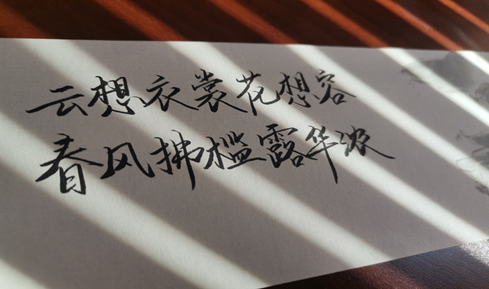 云想衣裳花想容
春风拂槛露华浓